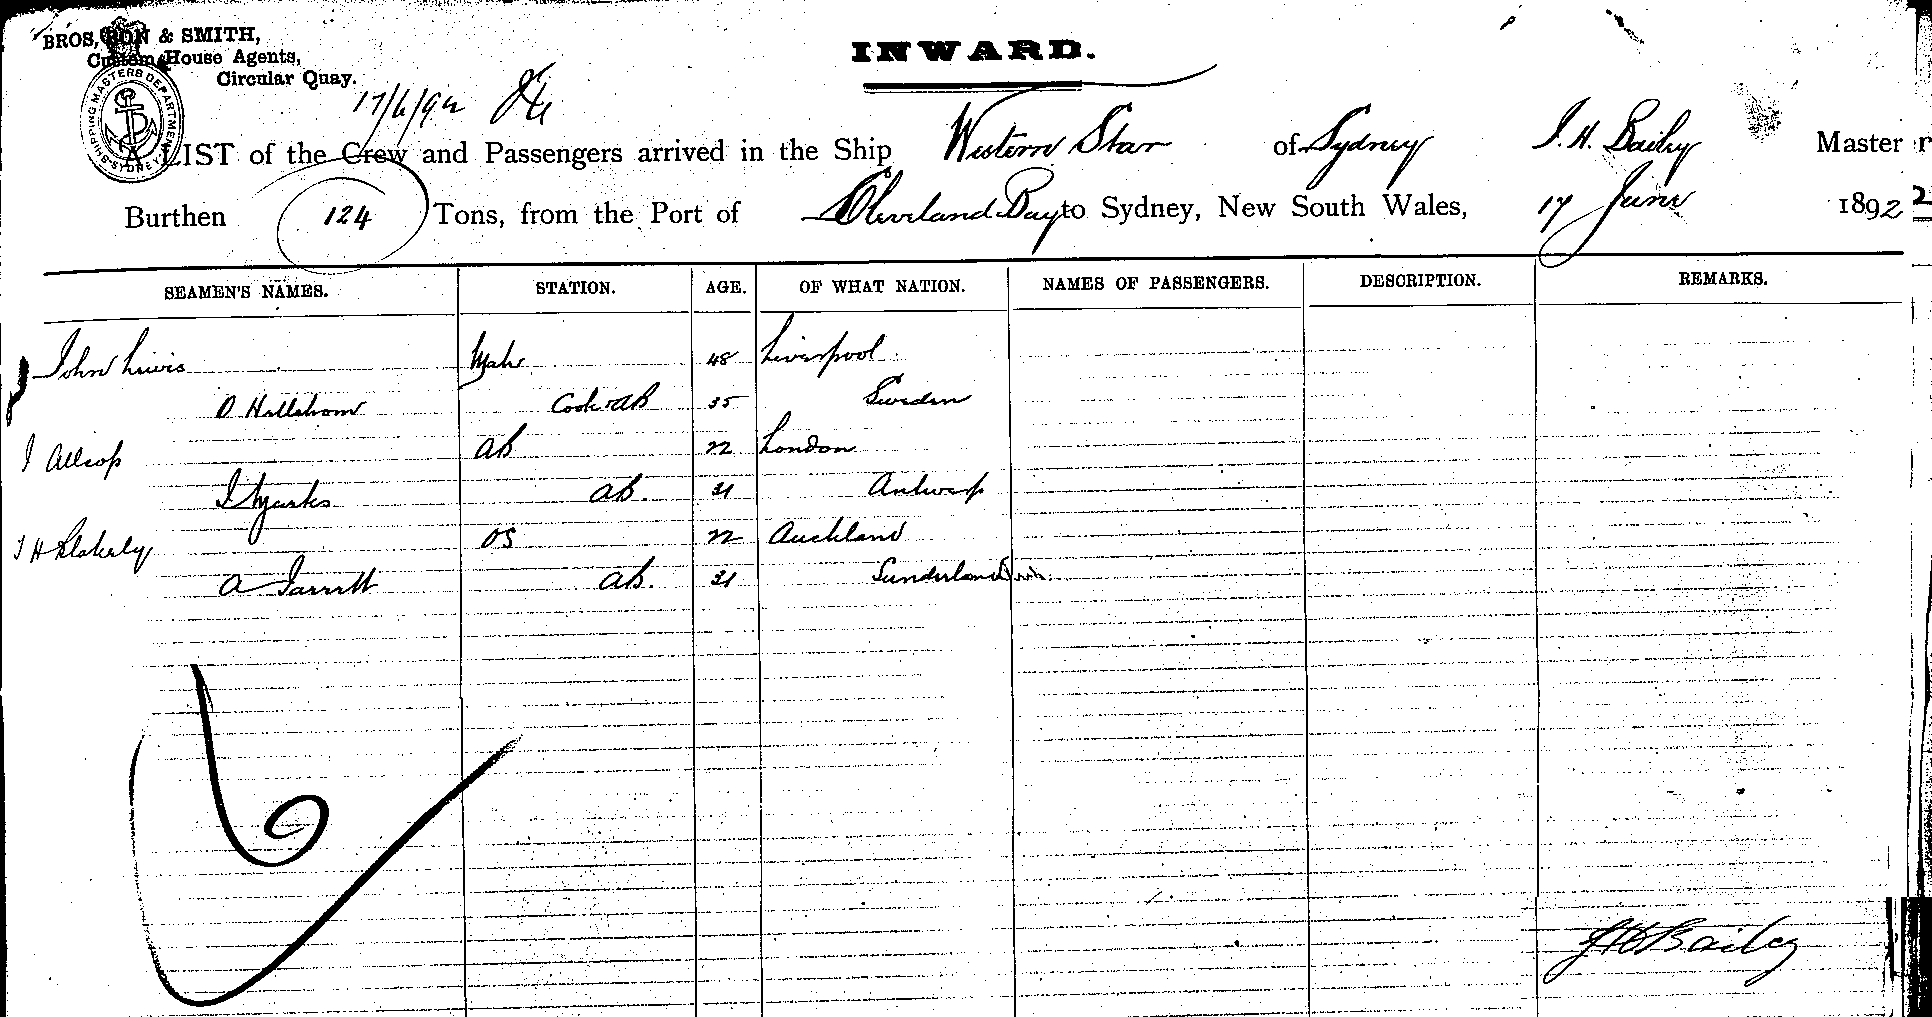 BROS, & SMITH,
Custom House Agents,
Circular Quay.
SHIPPING MASTERS DEPARTMENT SYDNEY
INWARD.
17/6/92
A LIST of the Crew and Passengers arrived in the Ship Western Star of Sydney J. H. Bailey Master
Burthen 124 Tons, from the Port of Cleveland Bay to Sydney, New South Wales, 17 June 1892
SEAMEN'S NAMES. STATION. AGE. OF WHAT NATION. NAMES OF PASSENGERS. DESCRIPTION. REMARKS.
John Lewis Mate 48 Liverpool
O Hallstrom Cook & AB 35 Sweden
J Allsop AB 22 London
AB. 31 Antwerp
J H Blakely OS 22 Auckland
A Jarrett AB. 31 Sunderland
J H Bailey